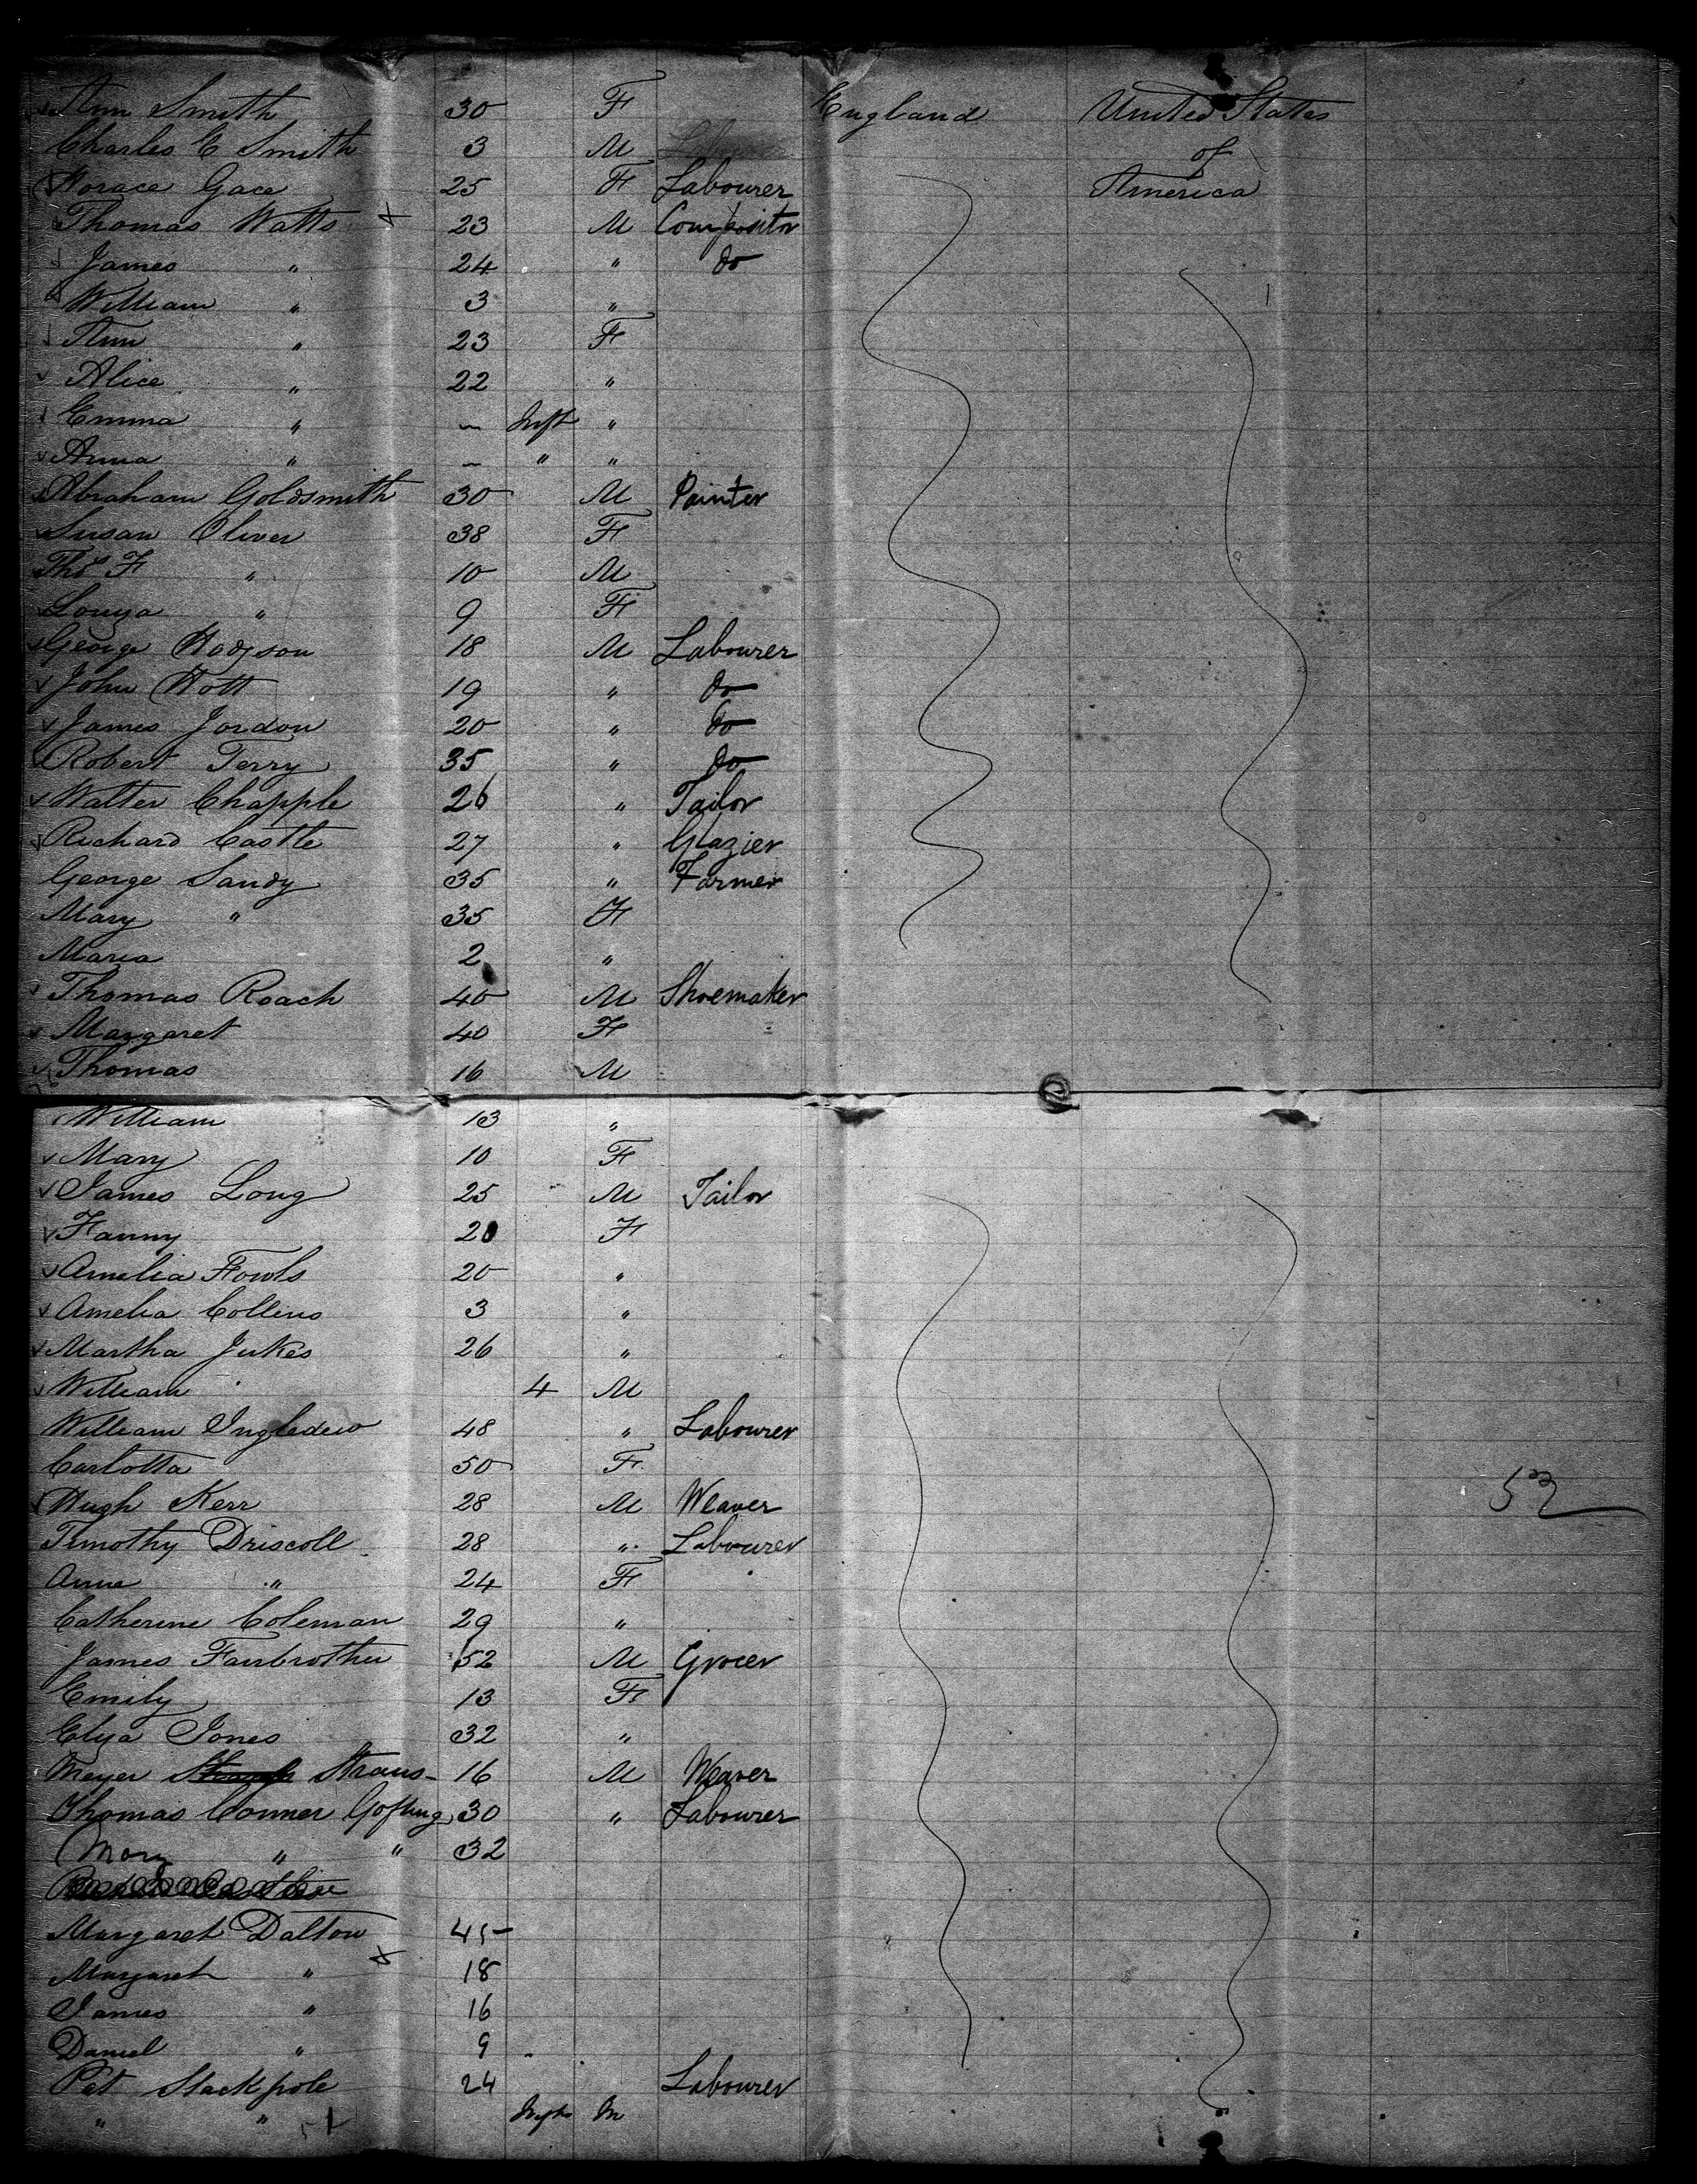 Ann Smith 30 F England United States
Charles E Smith 3 M of
Horace Gace 25 F Labourer America
Thomas Watts 23 M Compositor
James " 24 " do
William " 3 "
Ann " 23 F
Alice " 22 "
Emma " - Inft "
Anna " - " "
Abraham Goldsmith 30 M Painter
Susan Oliver 38 F
Thos F " 10 M
Louya " 9 F
George Hodgson 18 M Labourer
John Hott 19 " do
James Jordon 20 " do
Robert Terry 35 " do
Walter Chapple 26 " Tailor
Richard Castle 27 " Glazier
George Sandy 35 " Farmer
Mary " 35 F
Maria 2 "
Thomas Roach 40 M Shoemaker
Margaret 40 F
Thomas 16 M
William 13 "
Mary 10 F
James Long 25 M Tailor
Fanny 20 F
Amelia Fowls 20 "
Amelia Collens 3 "
Martha Jukes 26 "
William 4 M
William Ingledew 48 " Labourer
Carlotta 50 F
Hugh Kerr 28 M Weaver 53
Timothy Driscoll 28 " Labourer
Anne " 24 F
Catherine Coleman 29 "
James Fairbrother 52 M Grocer
Emily 13 F
Elya Jones 32 "
Meyer Straus 16 M Weaver
Thomas Conner 30 " Labourer
Mary " " 32
Margaret Dalton 45
Margaret " 18
James " 16
Daniel " 9
Pat Stackpole 24 Labourer
" " 51 Inft M